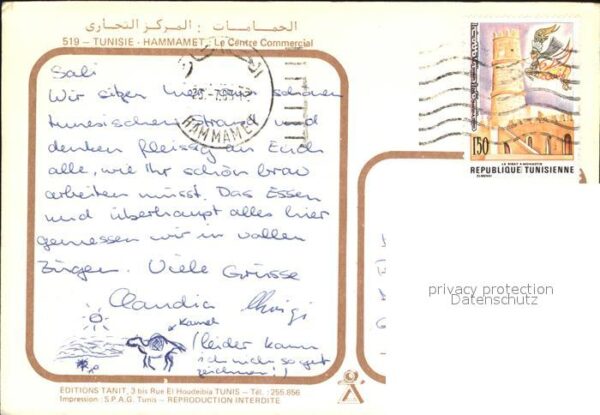 الحمامات : المركز التجاري
519 - TUNISIE - HAMMAMET, Le Centre Commercial
Sali
Wir sitzen hier am schönen
tunesischen Strand und
denken fleissig an Euch
alle, wie Ihr schön brav
arbeiten müsst. Das Essen
und überhaupt alles hier
geniessen wir in vollen
Zügen. Viele Grüsse
Claudia
Kamel
(leider kann
ich nicht so gut
zeichnen!)
HAMMAMET
150
LE RIBAT A MONASTIR
REPUBLIQUE TUNISIENNE
privacy protection
Datenschutz
EDITIONS TANIT, 3 bis Rue El Houdeibia TUNIS - Tél. : 255.856
Impression : S.P.A.G. Tunis - REPRODUCTION INTERDITE